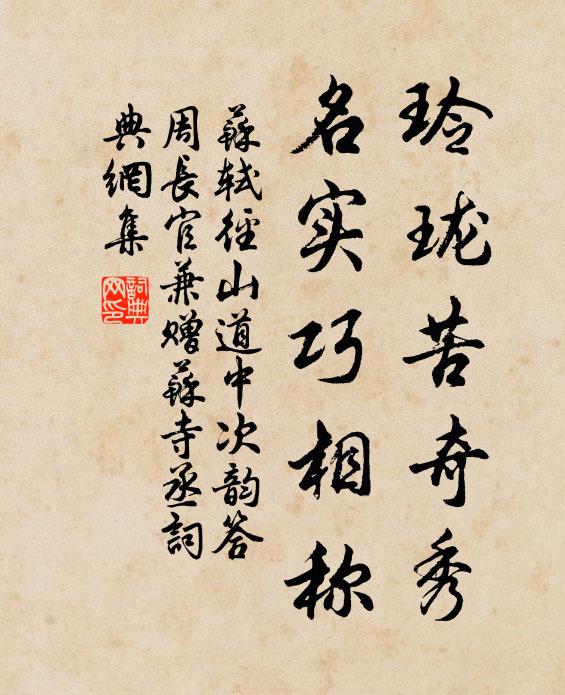 玲珑苦奇秀
名实巧相称
蘇轼径山道中次韵答
周長官兼赠蘇寺丞詞
典網集
詞典网印